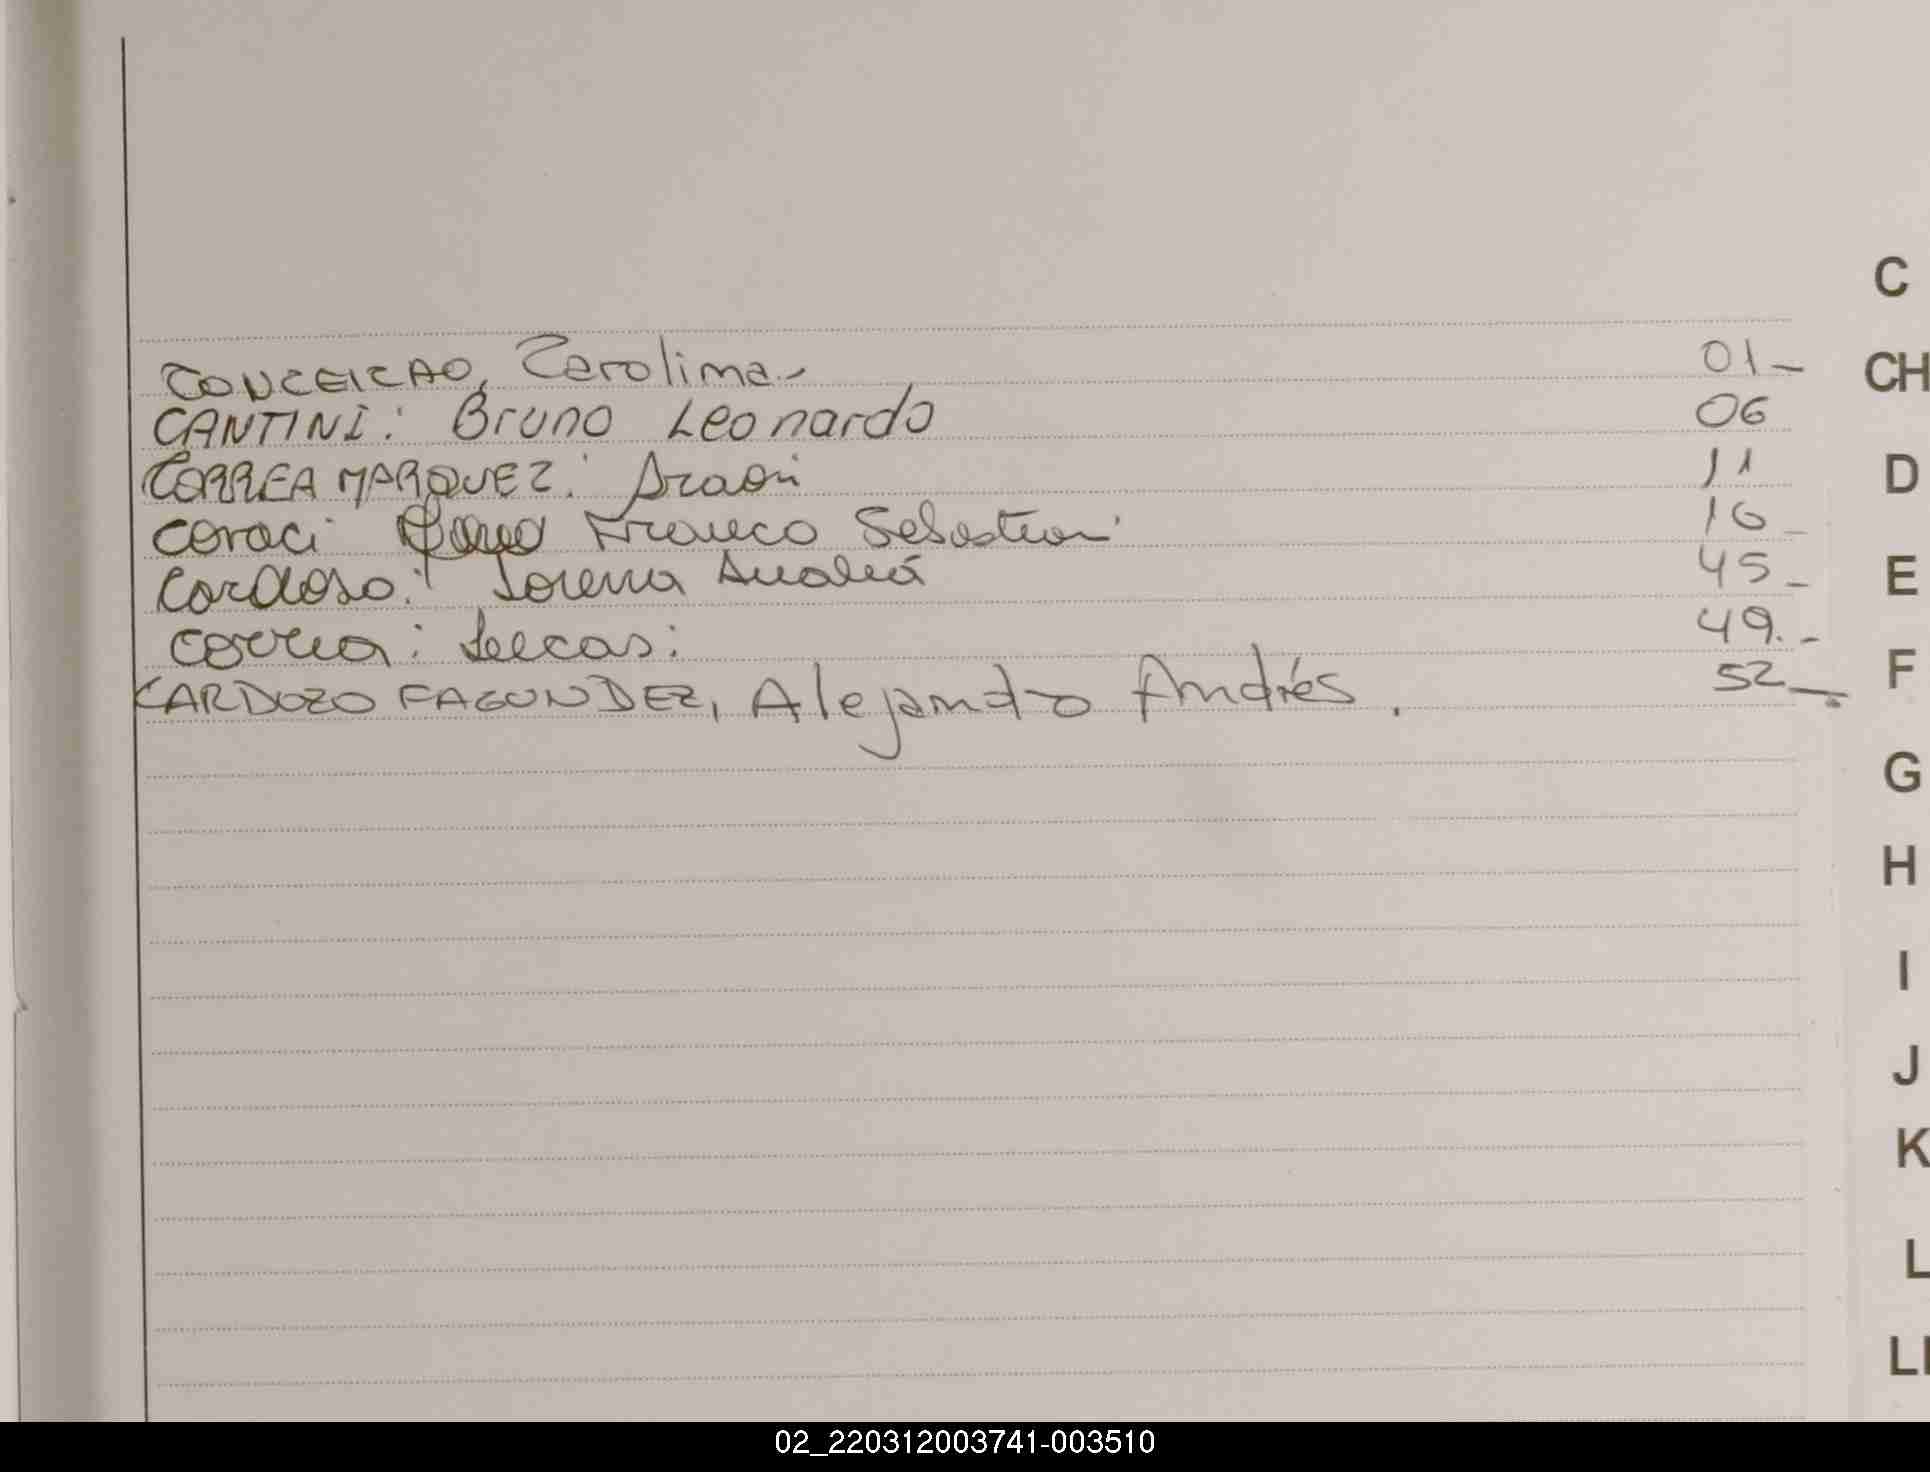 C
CONCEICAO, Carolina.- 01-
CH
CANTINI: Bruno Leonardo 06
CORREA MARQUEZ: 11
D
Franco Sebastian 16-
Cardoso: Lorena Analía 45-
E
Correa: Lucas: 49.-
CARDOZO FAGUNDEZ, Alejandro Andrés. 52-.
F
G
H
I
J
K
L
02_220312003741-003510